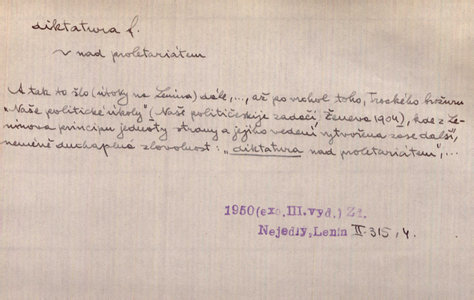 diktatura f.
~ nad proletariátem
A tak to šlo (útoky na Lenina) dále,..., až po vrchol toho, Trockého brožuru
„Naše politické úkoly" (Naše političeskije zadači, Ženeva 1904), kde z Le-
ninova principu jednoty strany a jejího vedení vytvořena zase další,
neméně duchaplná zlovolnost: „diktatura nad proletariátem",...
1950 (exc. III. vyd.) Zd.
Nejedlý, Lenin II. 315, 4.